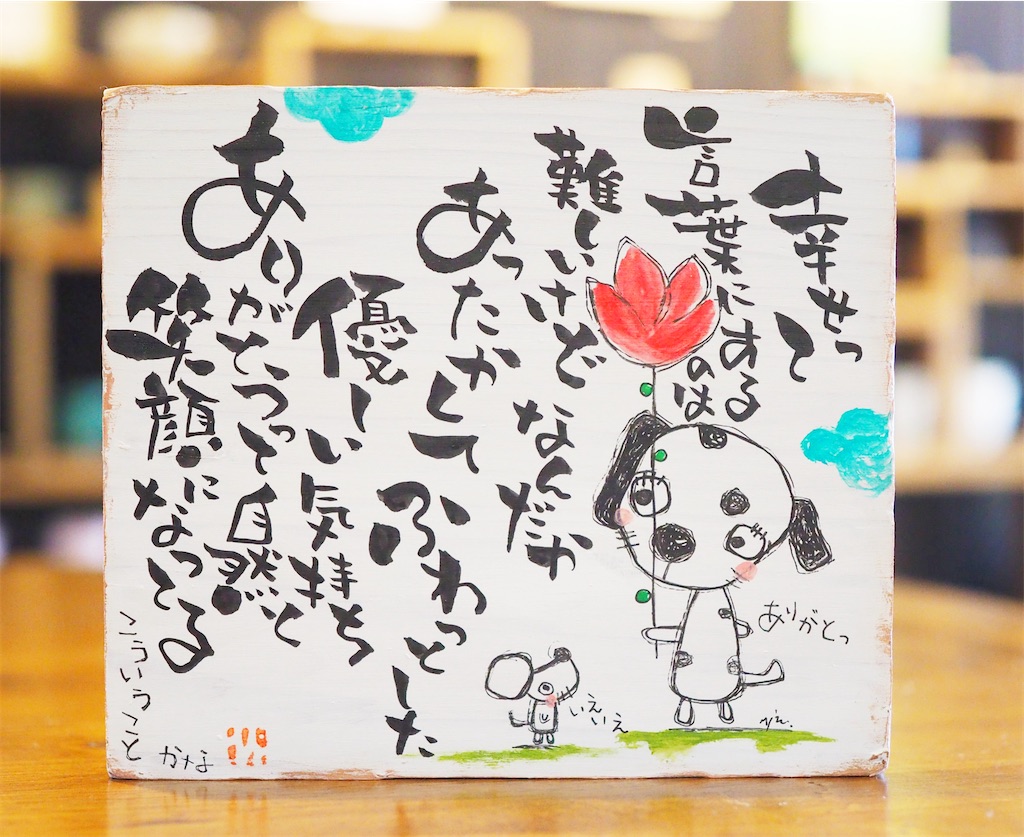 幸せって
言葉にあるのは
難しいけどなんだか
あったかくて
ふわっとした
優しい気持ち
ありがとうって自然と
笑顔になってる
こういうこと
かな
ありがとっ
いえいえ